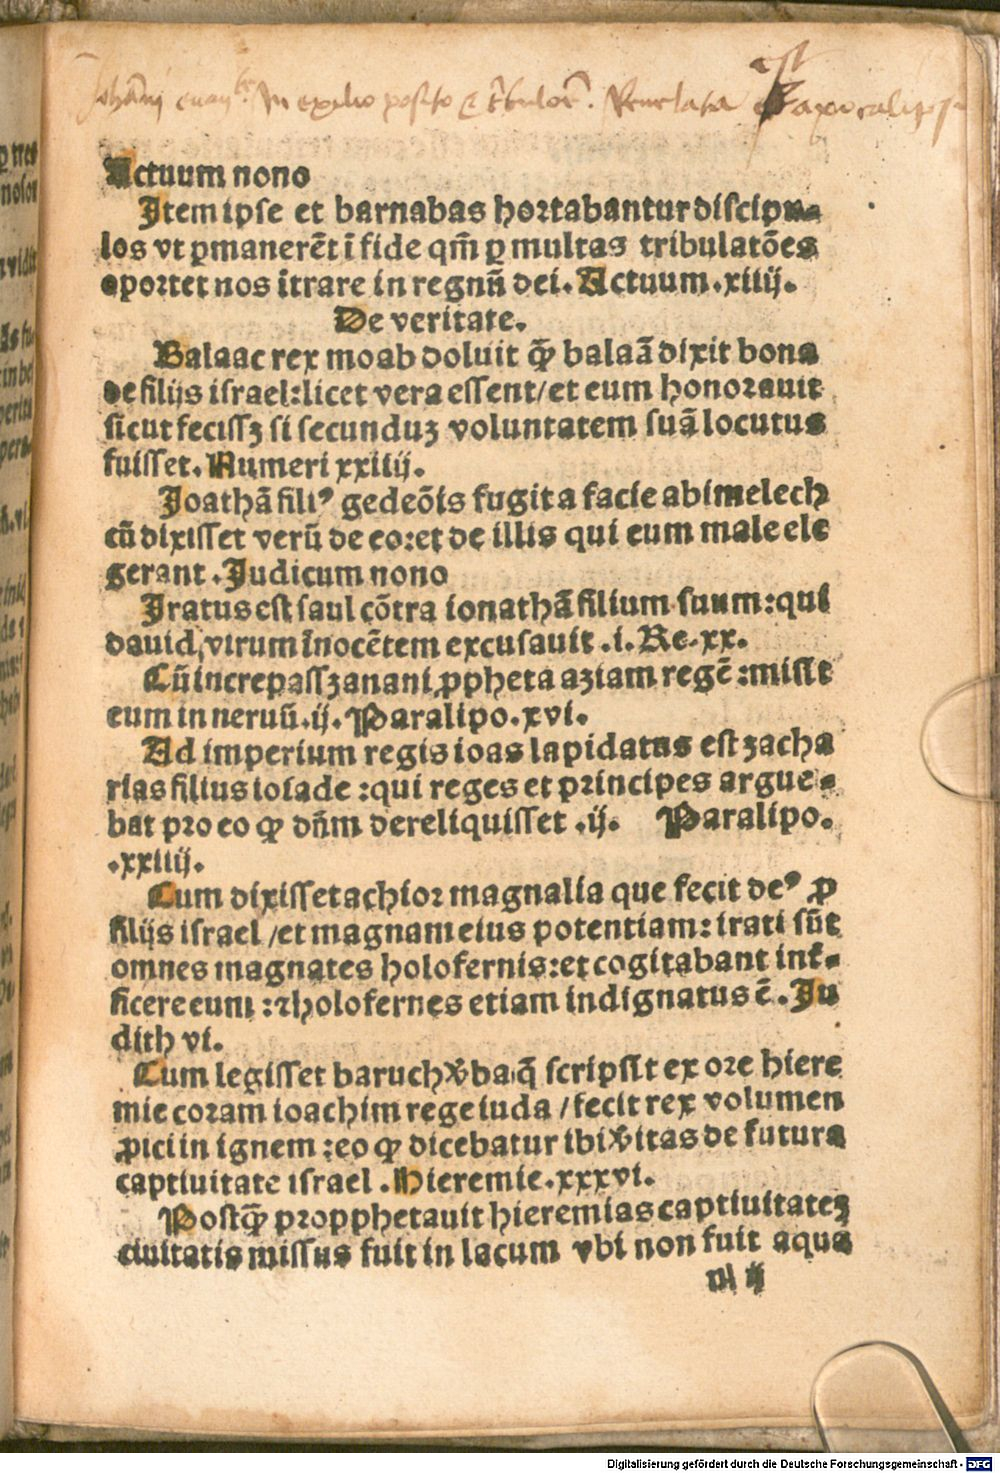 Johanni euangeliste In exilio posito et tribulationibus. Reuelata est apocalipsis
Actuum nono
Item ipse et barnabas hortabantur discipu-
los vt ꝑmanerēt ī fide qm̄ ꝑ multas tribulatōes
oportet nos ītrare in regnū dei. Actuum .xiiij.
De veritate.
Balaac rex moab doluit ꝙ balaā dixit bona
de filijs israel: licet vera essent/et eum honorauit
sicut fecissꝫ si secunduꝫ voluntatem suā locutus
fuisset. Numeri xxiiij.
Joathā filiꝰ gedeōis fugit a facie abimelech
cū dixisset verū de eo: et de illis qui eum male ele
gerant. Judicum nono
Iratus est saul cōtra ionathā filium suum: qui
dauid, virum īnocētem excusauit .i. Re. xx.
Cū increpassꝫ anani ꝓpheta aziam regē: misit
eum in neruū .ij. Paralipo. xvi.
Ad imperium regis ioas lapidatus est zacha
rias filius ioiade: qui reges et principes argue-
bat pro eo ꝙ dn̄m dereliquisset .ij. Paralipo.
.xxiiij.
Cum dixisset achior magnalia que fecit deꝰ ꝓ
filijs israel/et magnam eius potentiam: irati sūt
omnes magnates holofernis: et cogitabant int-
ficere eum: ⁊ holofernes etiam indignatus ē. Ju
dith vi.
Cum legisset baruch v̾ba q̄ scripsit ex ore hiere
mie coram ioachim rege iuda/fecit rex volumen
ꝓici in ignem: eo ꝙ dicebatur ibi v̾itas de futura
captiuitate israel. Hieremie. xxxvi.
Postꝙ̄ propphetauit hieremias captiuitateꝫ
ciuitatis missus fuit in lacum vbi non fuit aqua
ij
Digitalisierung gefördert durch die Deutsche Forschungsgemeinschaft - DFG